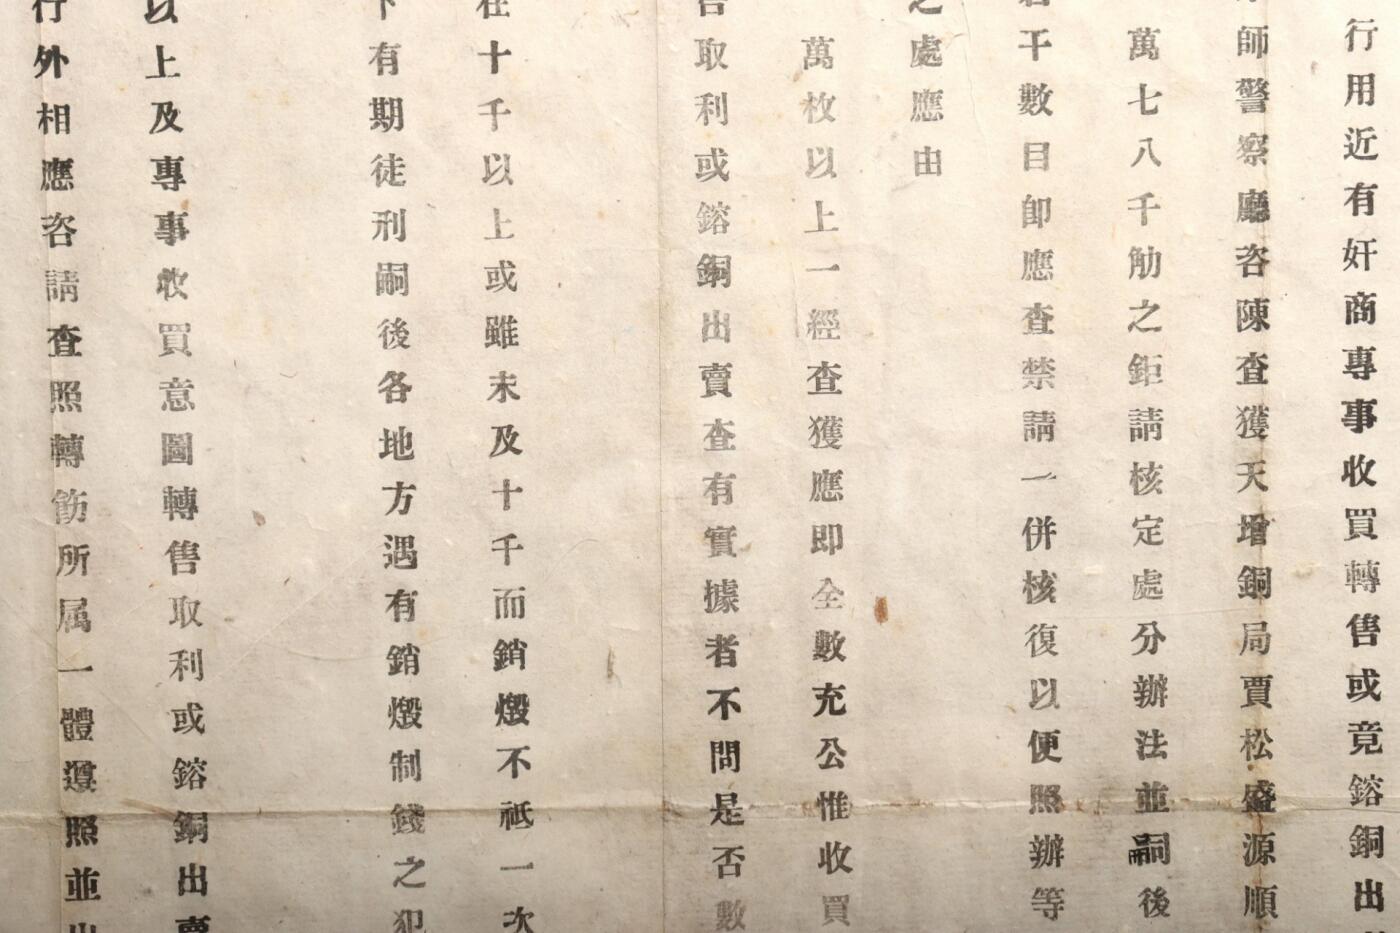 行用近有奸商專事收買轉售或竟鎔銅出
師警察廳咨陳查獲天增銅局賈松盛源順
萬七八千觔之鉅請核定處分辦法並嗣後
干數目卽應查禁請一併核復以便照辦等
之處應由
萬枚以上一經查獲應即全數充公惟收買
取利或鎔銅出賣查有實據者不問是否數
在十千以上或雖未及十千而銷燬不祗一次
下有期徒刑嗣後各地方遇有銷燬制錢之犯
以上及專事收買意圖轉售取利或鎔銅出賣
行外相應咨請查照轉飭所属一體遵照並出